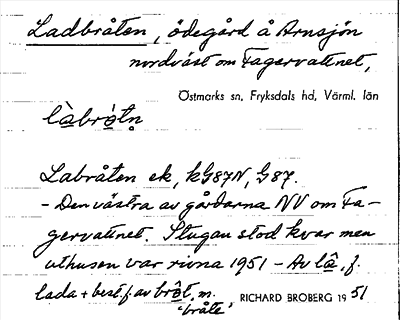 Ladbråten, ödegård å Arnsjön
nordväst om Fagervattnet,
Östmarks sn, Fryksdals hd, Värml. län
làbrò̭tn̥
Labråten ek, kG87N, G87.
- Den västra av gårdarna NV om Fa-
gervattnet. Stugan stod kvar men
uthusen var rivna 1951 - Av lâ, f.
lada + best. f. av brô̭t, m.
"bråte"
RICHARD BROBERG 1951